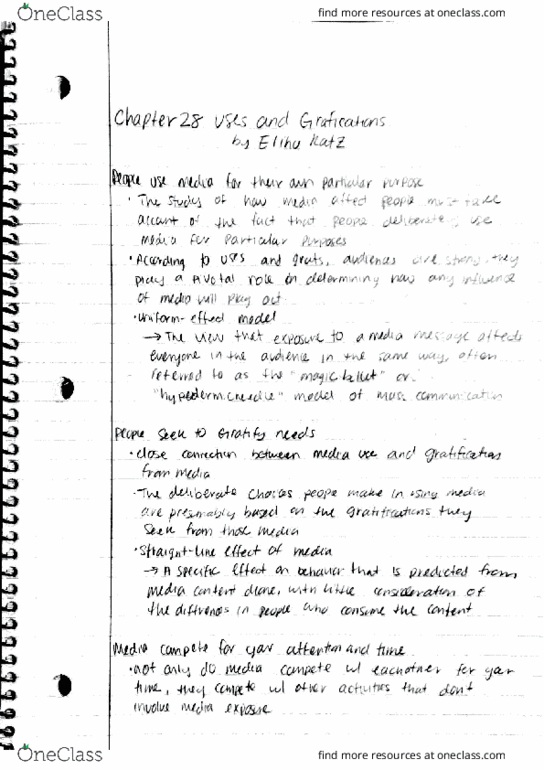 OneClass
find more resources at oneclass.com
Chapter 28 Uses and Grafications
by Elihu Katz
People use media for their own particular purpose
· The studies of how media affect people must take
account of the fact that people deliberately use
media for particular purposes
· According to uses and grats, audiences are strong, they
play a pivotal role in determining how any influence
of media will play out
· Uniform-effect model
→ The view that exposure to a media message affects
everyone in the audience in the same way, often
referred to as the "magic bullet" or
"hypodermic needle" model of mass communication
People seek to Gratify needs
· close connection between media use and gratifications
from media
· The deliberate choices people make in using media
are presumably based on the gratifications they
seek from those media
· Straight-line effect of media
→ A specific effect on behavior that is predicted from
media content alone, with little consideration of
the differences in people who consume the content
Media compete for your attention and time
· not only do media compete w/ eachother for your
time, they compete w/ other activities that don't
involve media exposure
OneClass
find more resources at oneclass.com